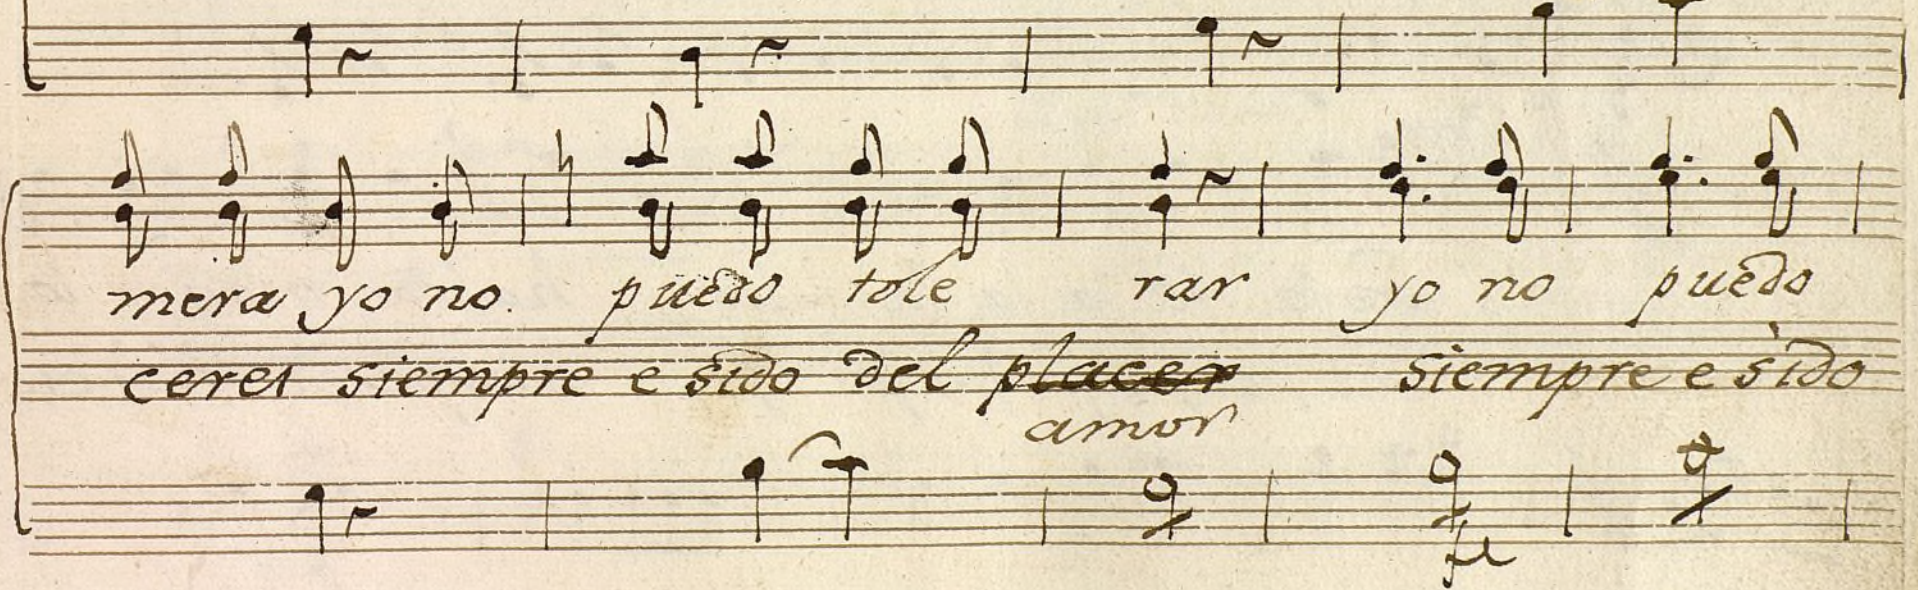 mera yo no puedo tole rar yo no puedo
ceres siempre e sido del placer siempre e sido
amor
fe